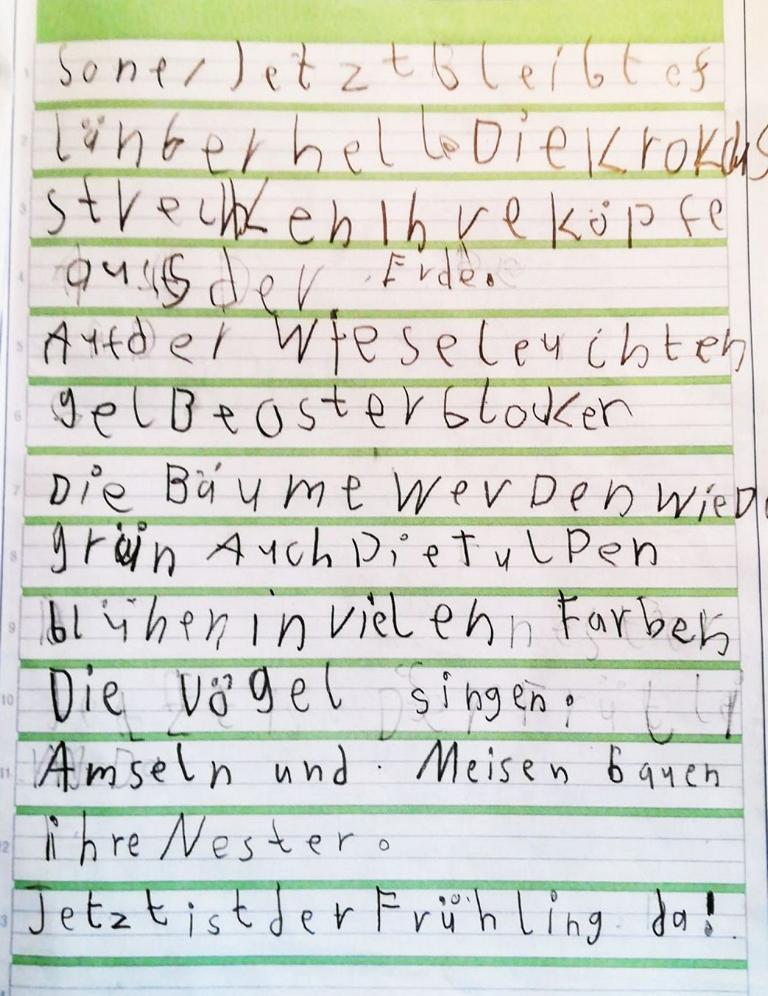 Sone/Jetzt Bleibt es
länger hell. Die Krokus
strecken Ihre köpfe
aus der Erde.
Auf der Wiese leuchten
gelBe osterglocken
Die Bäume Werden Wied
grün Auch Die Tulpen
blühen in vielen Farben
Die Vögel singen.
Amseln und Meisen bauen
ihre Nester.
Jetzt ist der Frühling da!